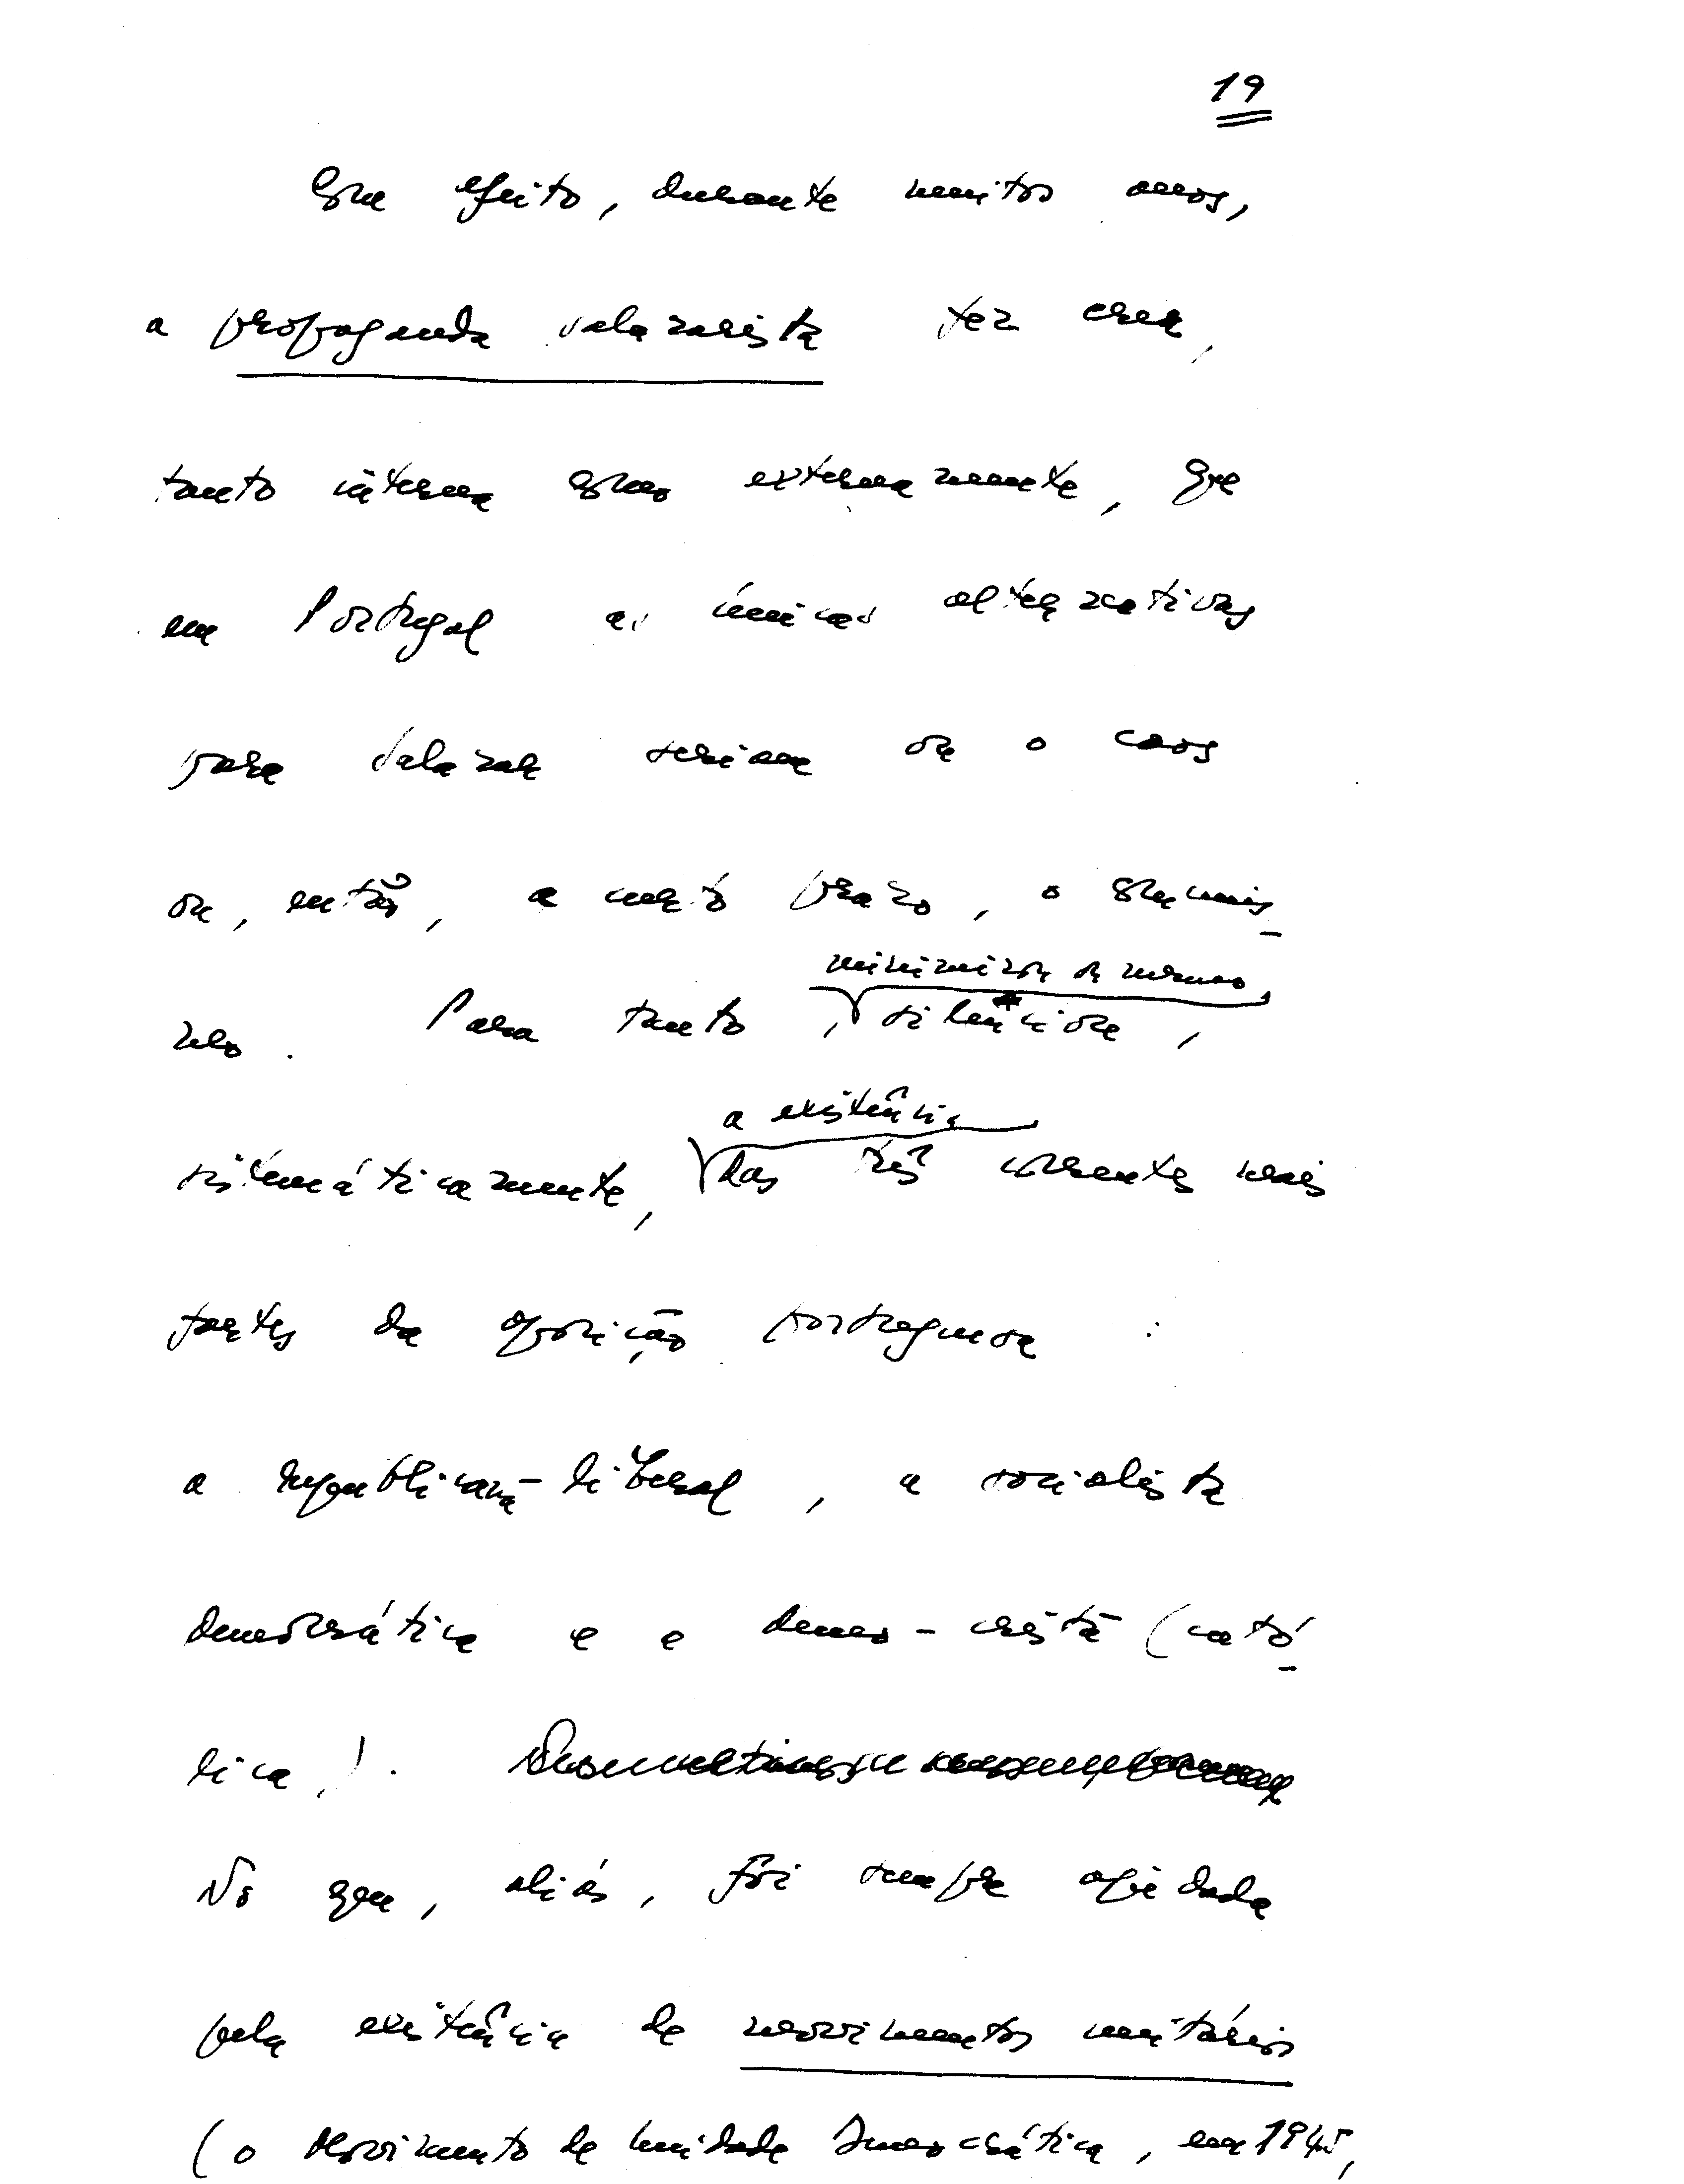 19
Com efeito, durante muitos anos,
a propaganda salazarista fez crer,
tanto interna como externamente, que
em Portugal as únicas alternativas
para Salazar seriam ou o caos
ou, então, a curto prazo, o comunis-
mo. Para tanto, silenciou,
minimizou ou mesmo,
sistemáticamente, das três correntes mais
a existência
fortes da oposição portuguesa :
a republicana-liberal, a socialista
democrática e a demo-cristã (cató-
lica).
No que, aliás, foi sempre ajudada
pela existência de movimentos unitários
(o Movimento de Unidade Democrática, em 1945,